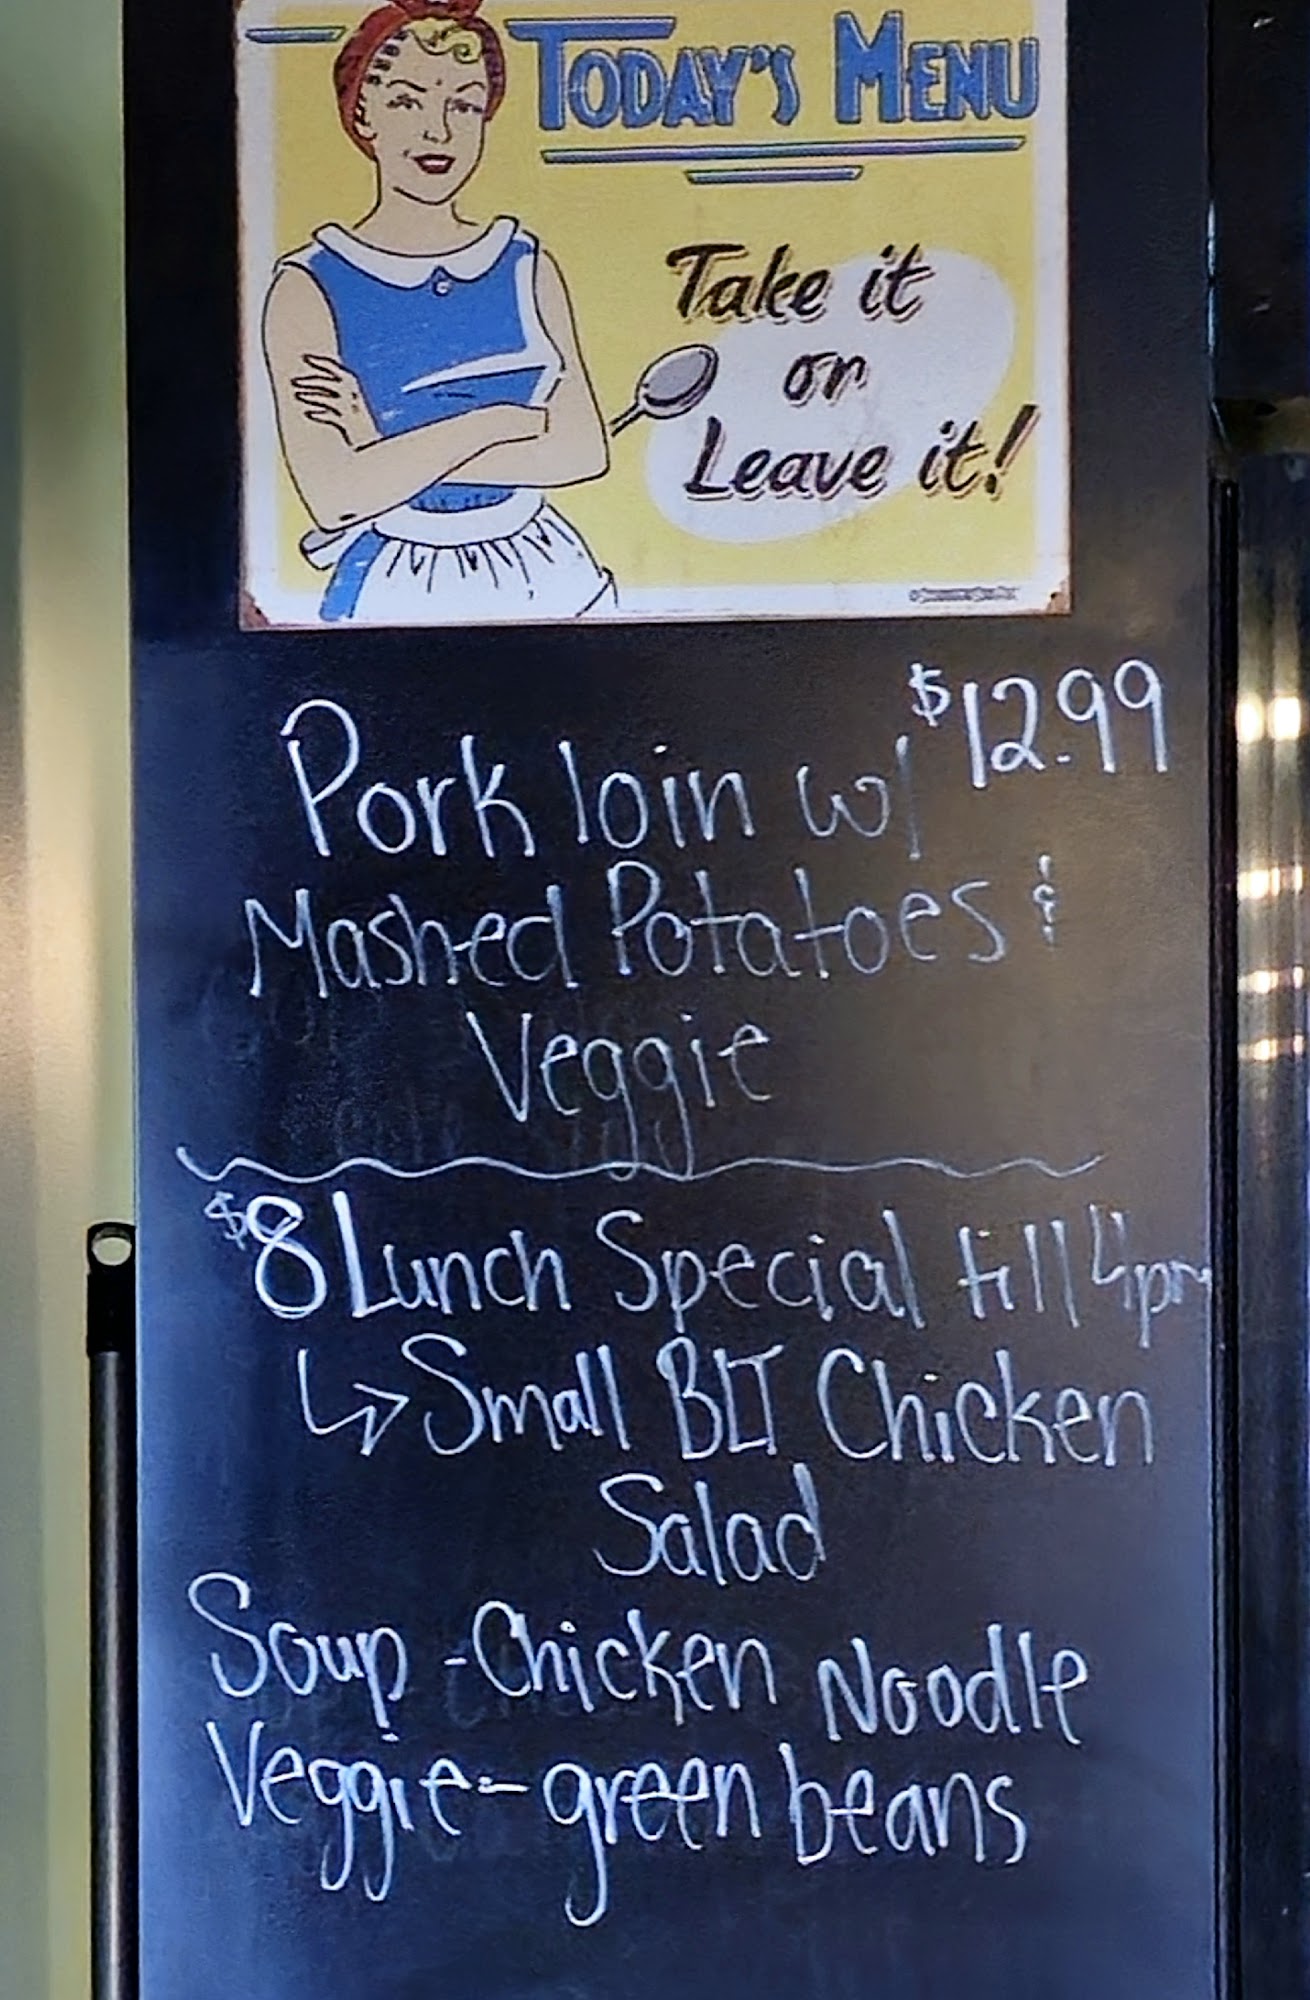 TODAY'S MENU
Take it
or
Leave it!
$12.99
Pork loin w/
Mashed Potatoes &
Veggie
$8 Lunch Special till 4pm
↳ Small BLT Chicken
Salad
Soup - Chicken Noodle
Veggie - green beans